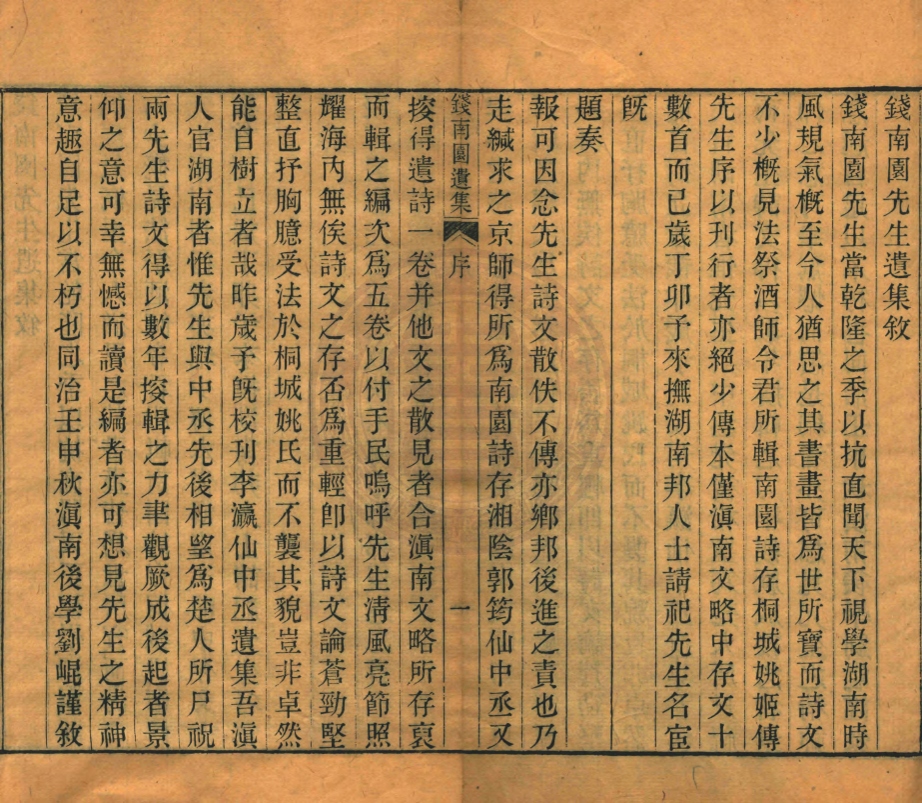 錢南園先生遺集敘
錢南園先生當乾隆之季以抗直聞天下視學湖南時
風規氣概至今人猶思之其書畫皆為世所寶而詩文
不少概見法祭酒師令君所輯南園詩存桐城姚姬傳
先生序以刊行者亦絕少傳本僅滇南文略中存文十
數首而已歲丁卯予來撫湖南邦人士請祀先生名宦
既
題奏
報可因念先生詩文散佚不傳亦鄉邦後進之責也乃
走緘求之京師得所為南園詩存湘陰郭筠仙中丞又
錢南園遺集 序 一
搜得遺詩一卷并他文之散見者合滇南文略所存裒
而輯之編次為五卷以付手民嗚呼先生清風亮節照
耀海內無俟詩文之存否為重輕卽以詩文論蒼勁堅
整直抒胸臆受法於桐城姚氏而不襲其貌豈非卓然
能自樹立者哉昨歲予既校刊李瀛仙中丞遺集吾滇
人官湖南者惟先生與中丞先後相望為楚人所尸祝
兩先生詩文得以數年搜輯之力聿觀厥成後起者景
仰之意可幸無憾而讀是編者亦可想見先生之精神
意趣自足以不朽也同治壬申秋滇南後學劉崐謹敘